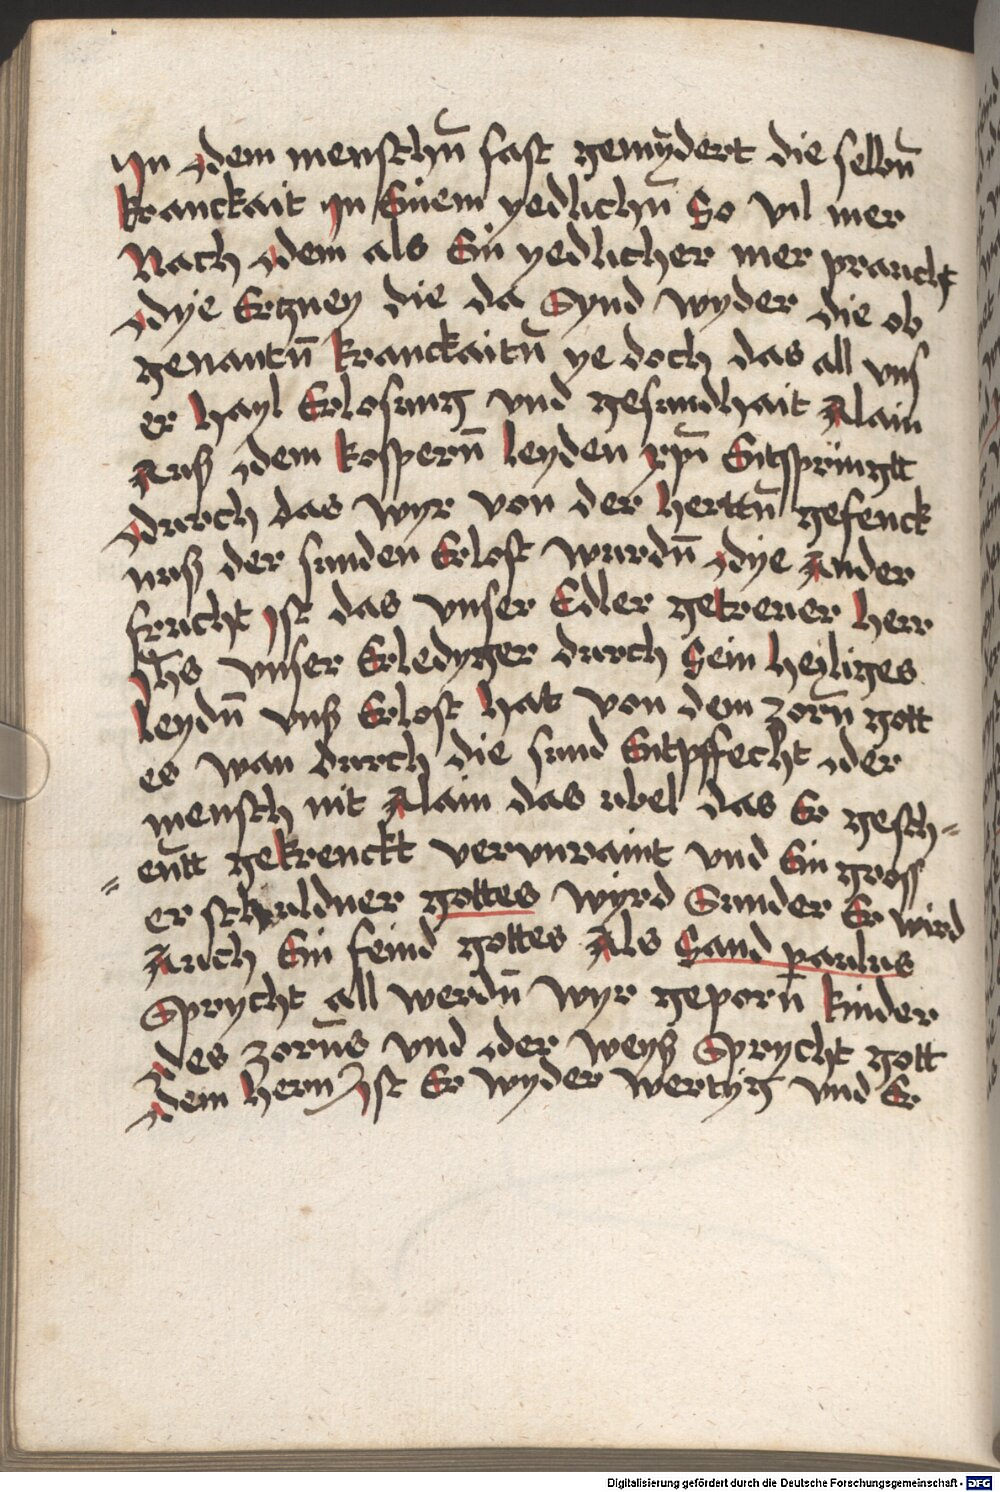 Jn dem menschn̄ fast gemÿdert die selbn̄
kranckait Jn Einem yedlichn̄ So vil mer
Nach dem als Ein yedlicher mer praucht
dye Erczney die da Synd wyder die ob
genantn̄ kranckaitn̄ ye doch das all vns
er hayl Erlosung vnd gesundhait Alain
Auß dem kospern̄ leyden xp̄i Entspringtt
durch das wyr von der herttn̄ gefenck
nuß der sunden Erlost wurdn̄ dye Ander
frucht Jst das vnser Edler getreuer herr
Jh̄s vnser Erledyger durch Sein heyliges
leydn̄ vnß Erlost hat von dem zorn̄ gott
es wan durch die sund Entpffecht der
mensch nit Alain das ubel das Er gesch=
=entt gekrenckt vervnraint vnd Ein gross
er schuldner gottes wyrd Sunder Er wird
Auch Ein feind gottes Als Sand paulus
Sprycht all werdn̄ wyr geporn̄ kinder
des zorn̄s vnd der weyß Sprycht gott
dem hern Jst Er wyder wertyg vnd Er
Digitalisierung gefördert durch die Deutsche Forschungsgemeinschaft - DFG